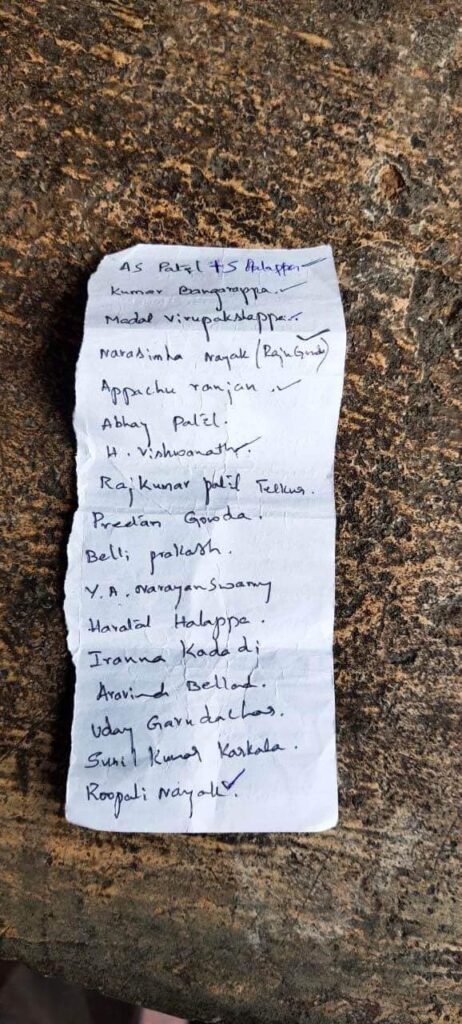 AS Patil + S Halappa
Kumar Bangarappa.
Madal Virupakshappa.
Narasimha Nayak (Raju Gowda)
Appachu ranjan.
Abhay Patil.
H. Vishwanath.
Rajkumar patil Telkur.
Preetan Gowda.
Belli prakash.
Y.A. Narayanswamy
Haratal Halappa.
Iranna Kadadi
Aravind Bellad.
Uday Garudachar.
Sunil Kumar Karkala.
Roopali Nayak.